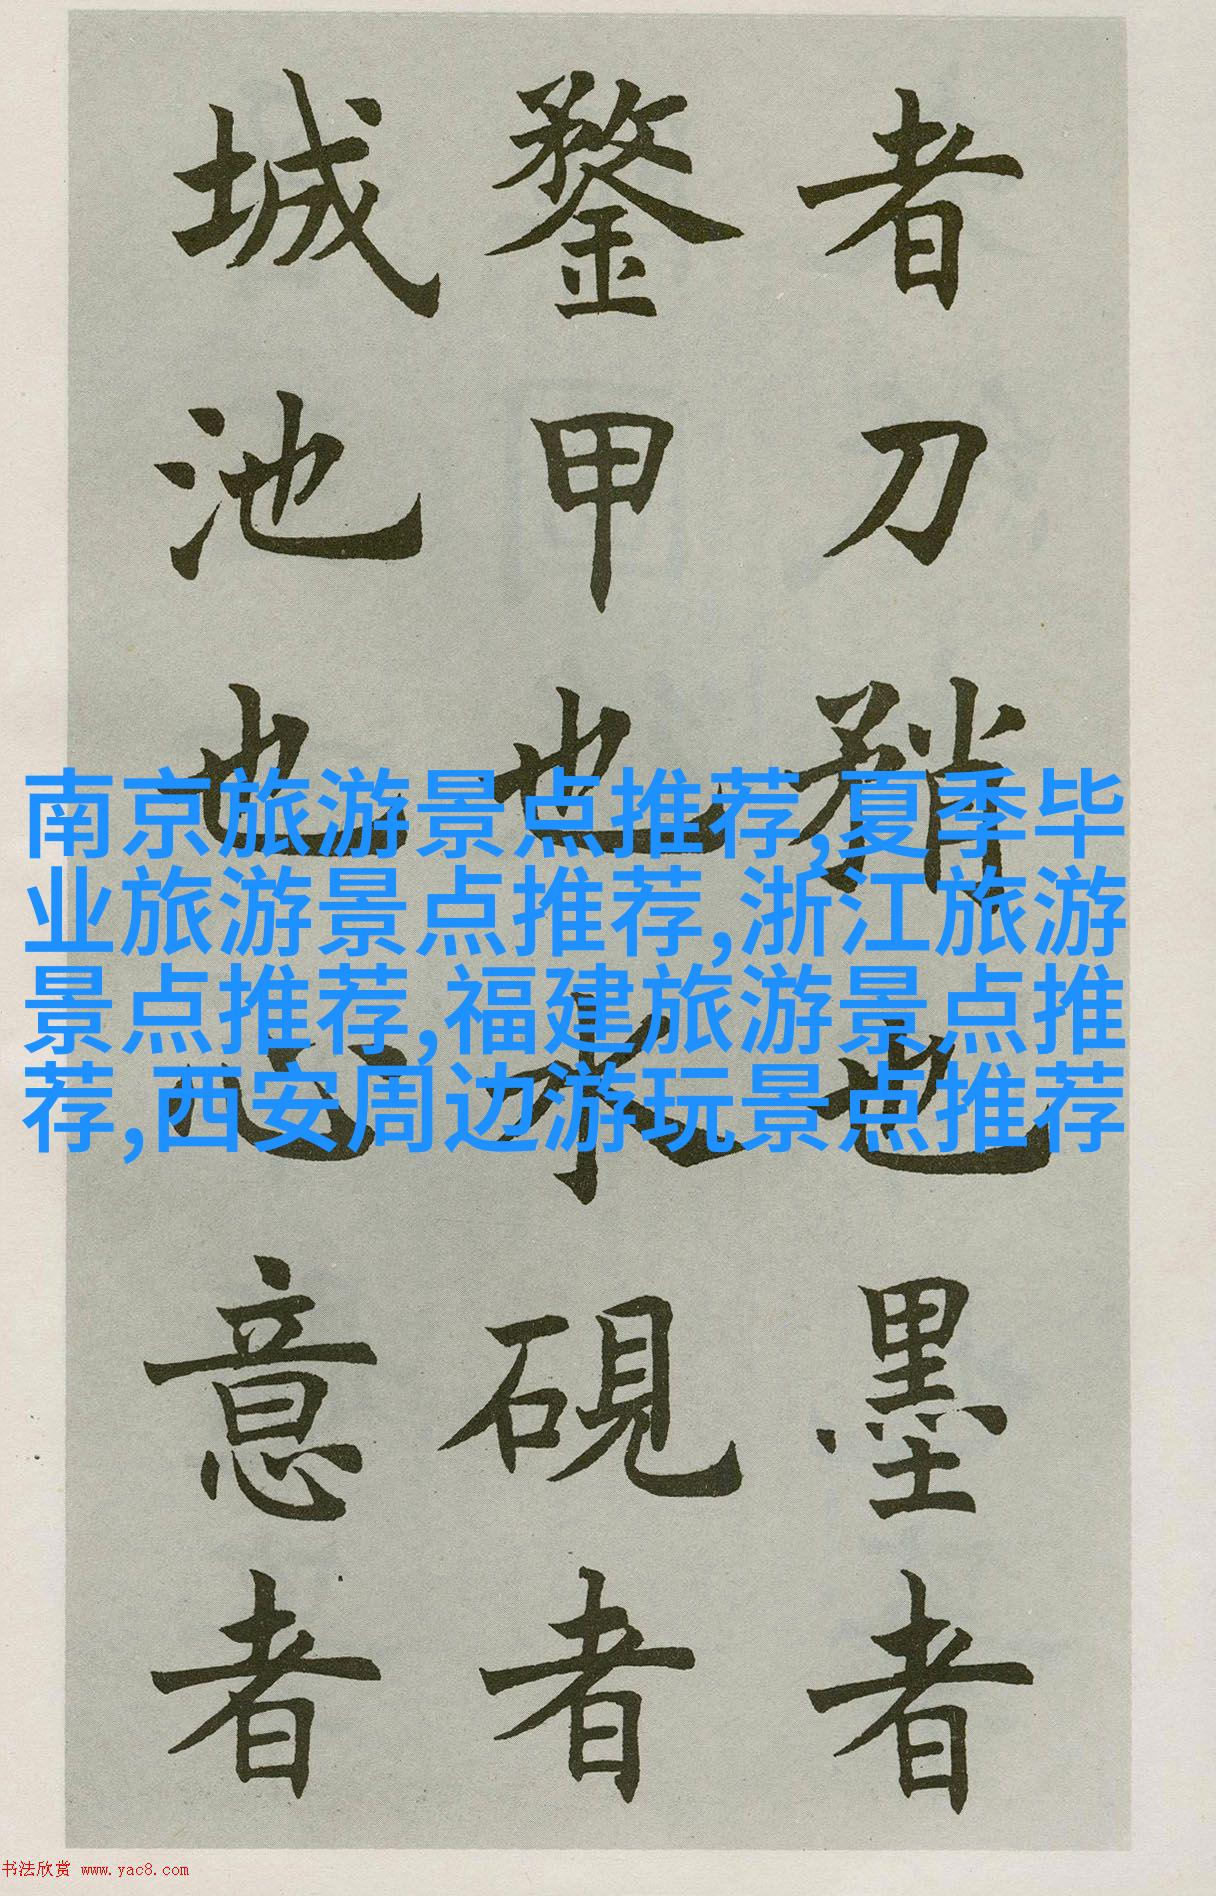 者刀矟也墨者
鍪甲也水硯者
城池也心意者
南京旅游景点推荐,夏季毕
业旅游景点推荐,浙江旅游
景点推荐,福建旅游景点推
荐,西安周边游玩景点推荐
书法欣赏 www.yac8.com